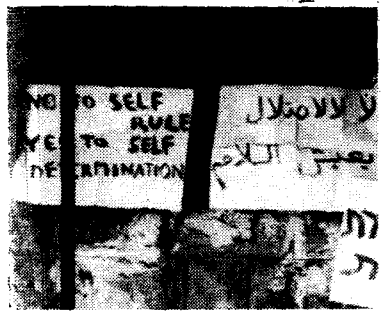 NO TO SELF
RULE
YES TO SELF
DETERMINATION
لا للاحتلال
يعيش السلام